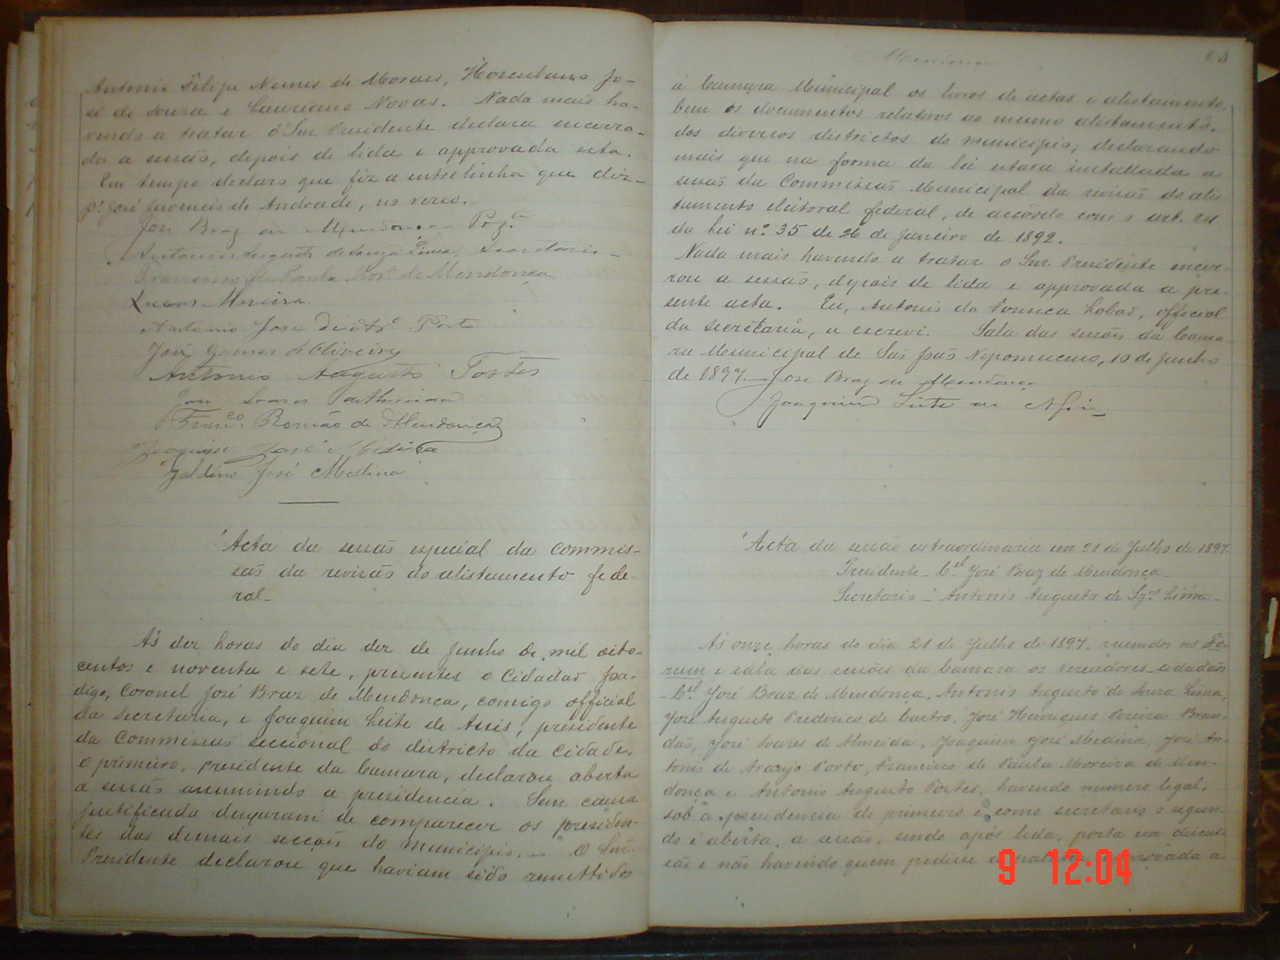 Antonio Felipe Nunes de Moraes, Herculano Jo-
sé de Souza e Laureano Novas. Nada mais ha-
vendo a tratar o Snr. Presidente declara encerra-
da a sessão, depois de lida e approvada esta.
Em tempo declaro que fiz a entrelinha que diz-
José Juvencio de Andrade, no verso.
José Braz de Mendonça
Antonio Augusto de Souza Lima, Secretario
Francisco de Paula Mor.ª de Mendonça
Lucas Moreira
Antonio José de Ar.º Porto
José Gomes d'Oliveira
Antonio Augusto Tostes
José Soares de Almeida
Fran.co Romão de Mendonça
Joaquim José Medina
Galdino José Medina
Acta da sessão especial da commis-
são da revisão do alistamento fede-
ral-
Ás dez horas do dia dez de Junho de mil oito-
centos e noventa e sete, presentes o Cidadão
Coronel José Braz de Mendonça, comigo official
da secretaria, e Joaquim Leite de Assis, presidente
da commissão seccional do districto da Cidade,
o primeiro, presidente da Camara, declarou aberta
a sessão assumindo a presidencia. Sem causa
justificada deixaram de comparecer os presiden-
tes das demais secções do municipio. — O Snr.
Presidente declarou que haviam sido remettidos
Mendonça
23
á Camara Municipal os livros de actas e alistamento,
bem os documentos relativos ao mesmo alistamento,
dos diversos districtos do municipio; declarando
mais que na forma da lei estava installada a
sessão da Commissão Municipal da revisão do alis-
tamento eleitoral federal, de accôrdo com o art. 24
da lei nº 35 de 26 de Janeiro de 1892.
Nada mais havendo a tratar o Snr. Presidente encer-
rou a sessão, depois de lida e approvada a pre-
sente acta. Eu, Antonio da Fonseca Lobão, official
da secretaria, a escrevi. Sala das sessões da Cama-
ra Municipal de São João Nepomuceno, 10 de Junho
de 1897.— José Braz de Mendonça
Joaquim Leite de Assis
Acta da sessão extraordinaria em 21 de Julho de 1897.
Presidente - C.el José Braz de Mendonça-
Secretario - Antonio Augusto de Sz.ª Lima-
Ás onze horas do dia 21 de Julho de 1897, reunidos no Fo-
rum e sala das sessões da Camara os vereadores cidadãos
- C.el José Braz de Mendonça, Antonio Augusto de Souza Lima,
José Augusto Frederico de Castro, José Henriques Pereira Bran-
dão, José Soares de Almeida, Joaquim José Medina, José An-
tonio de Araujo Porto, Francisco de Paula Moreira de Men-
donça e Antonio Augusto Tostes, havendo numero legal,
sob a presidencia do primeiro e como secretario o segun-
do é aberta a sessão, sendo após lida, posta em discus-
são e não havendo quem pedisse a palavra approvada a
9 12:04